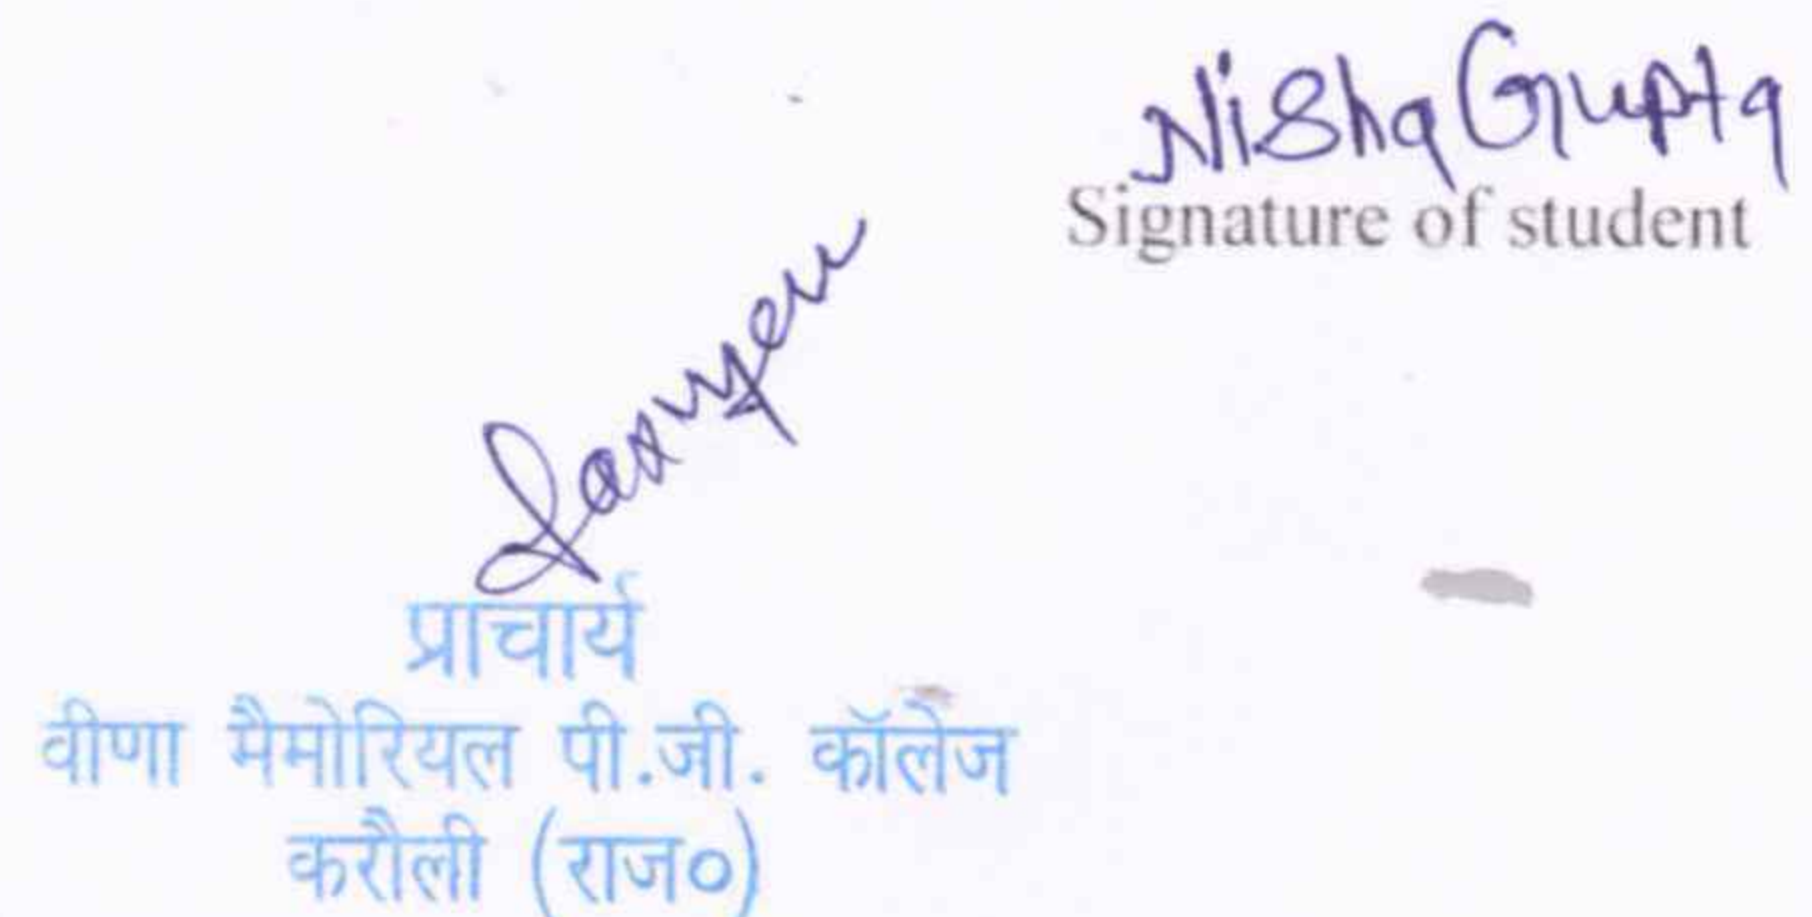 Nisha Gupta
Signature of student
प्राचार्य
वीणा मैमोरियल पी.जी. कॉलेज
करौली (राज०)